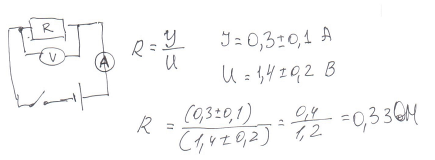 R
V
A
R = У/U
У = 0,3±0,1 А
U = 1,4±0,2 В
R = (0,3±0,1)/(1,4±0,2) = 0,4/1,2 = 0,33 ОМ